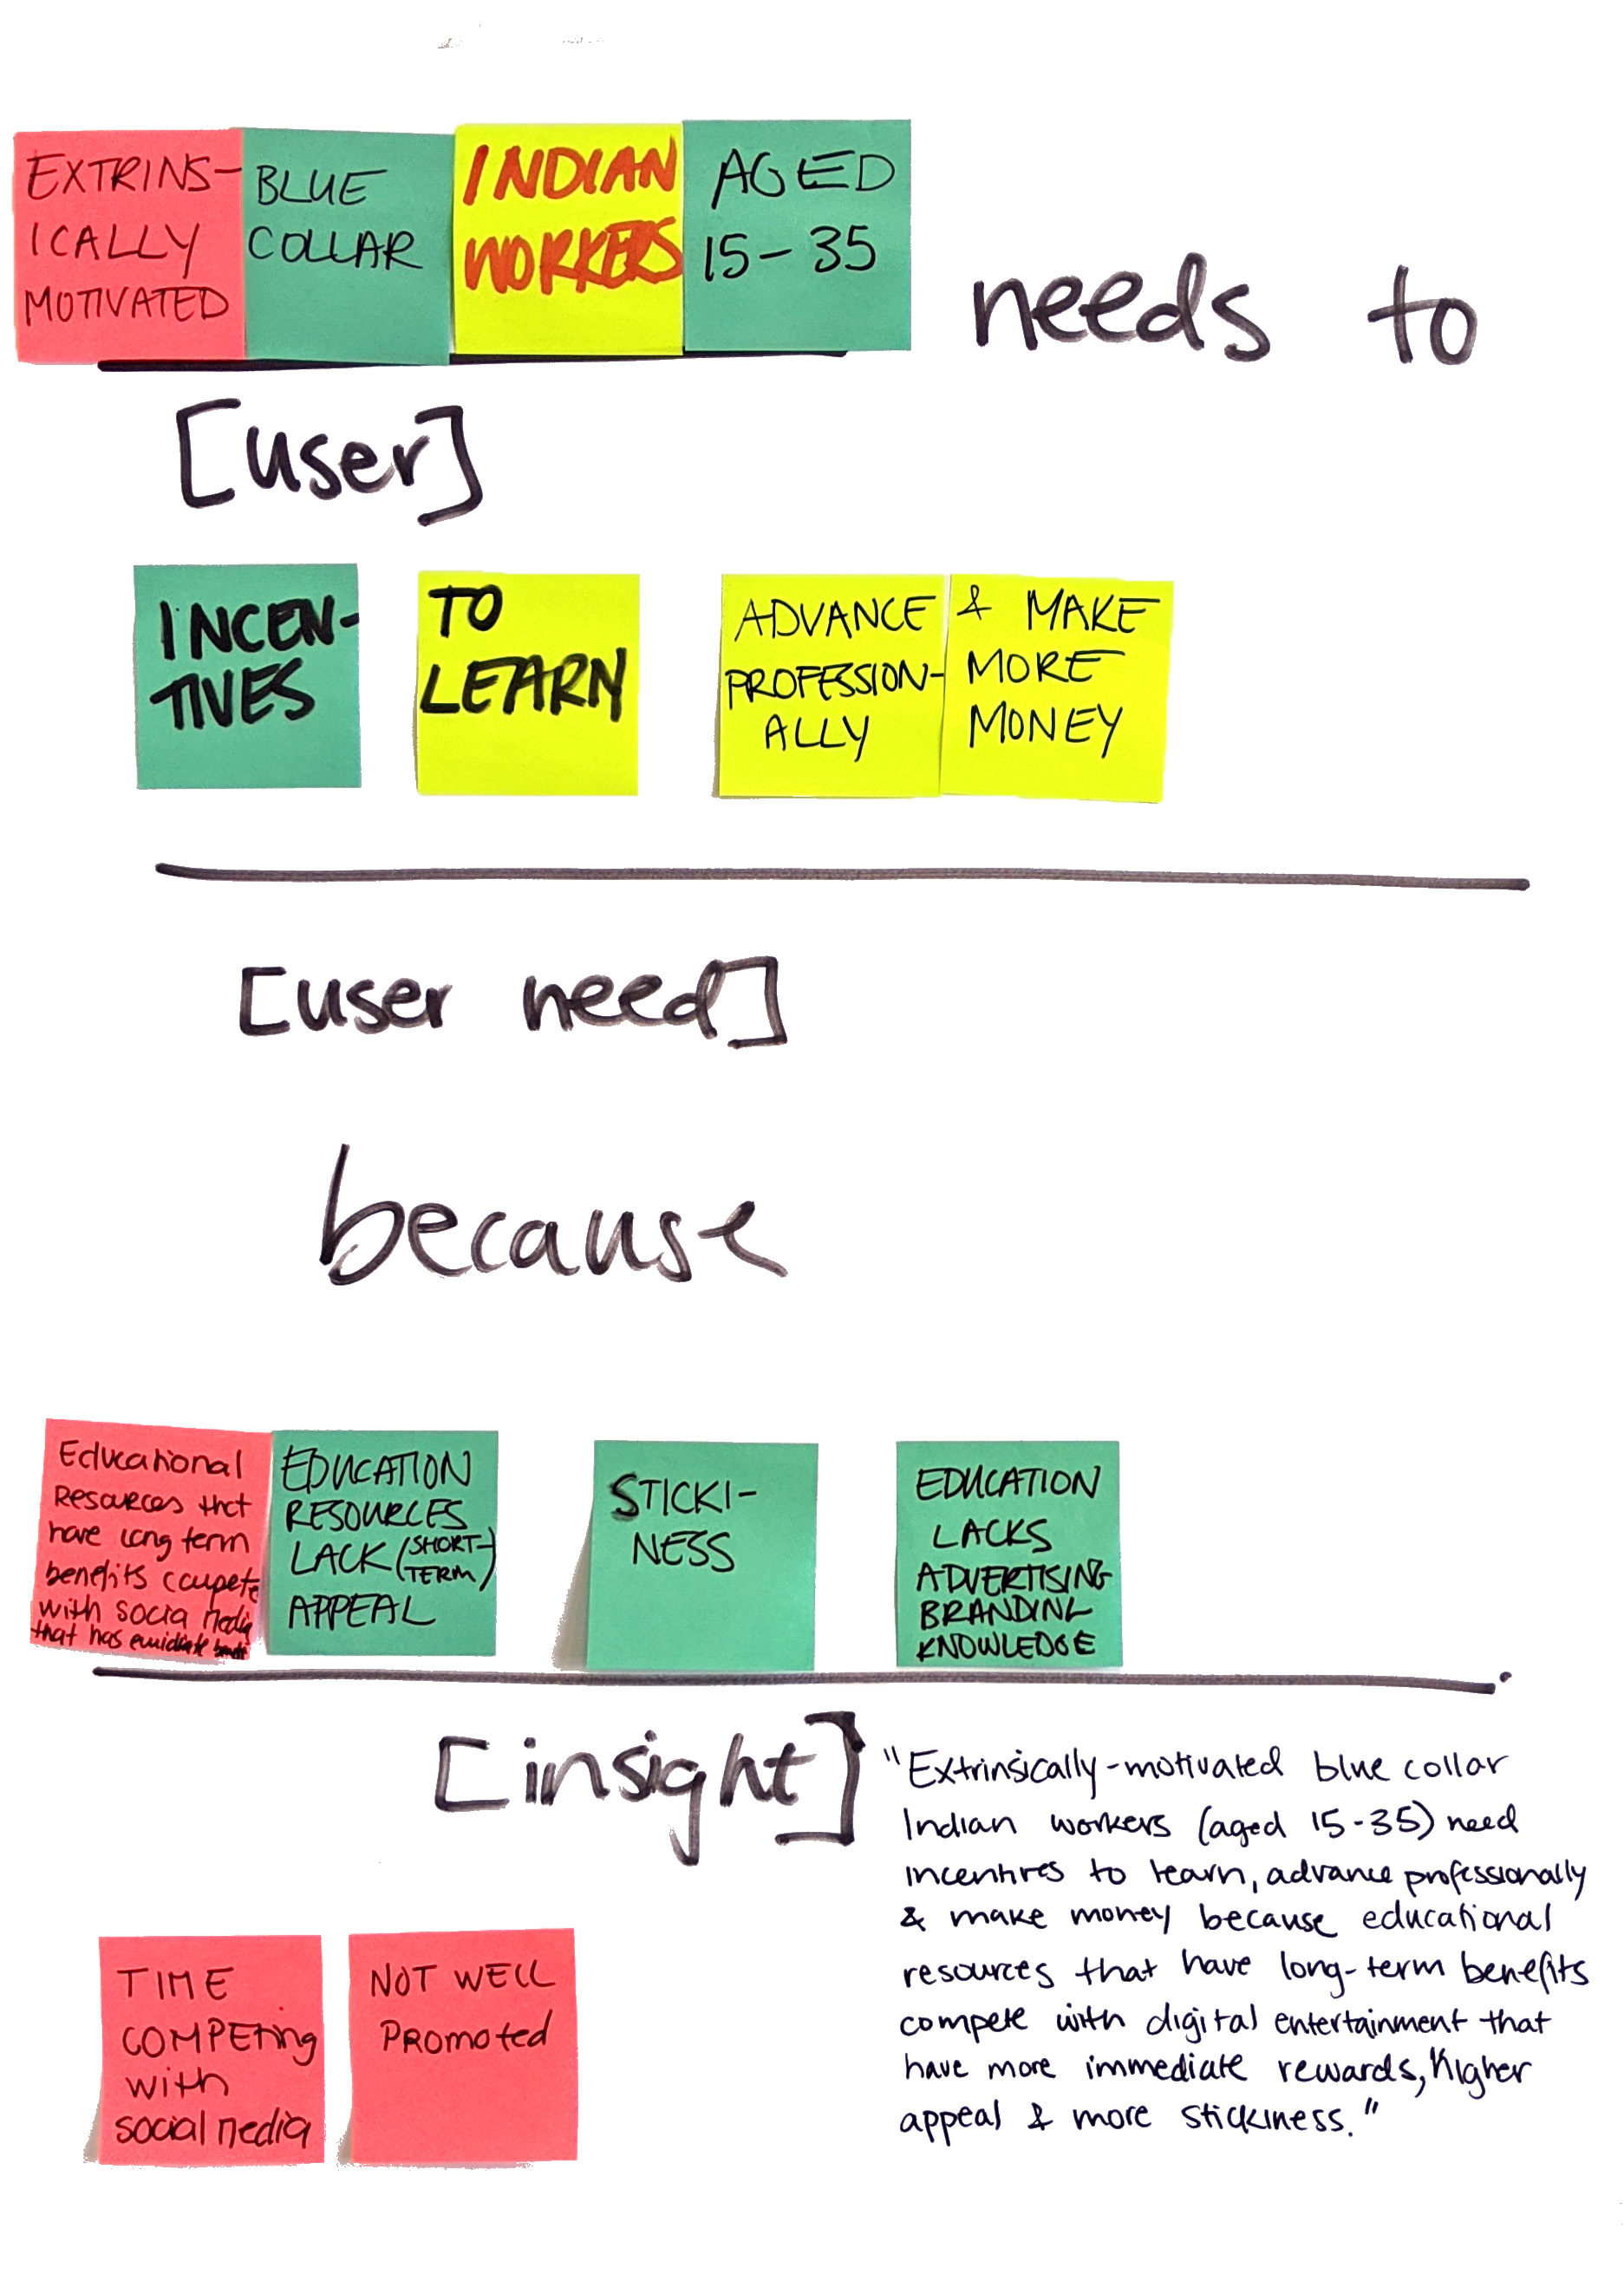 EXTRINS-
ICALLY
MOTIVATED
BLUE
COLLAR
INDIAN
WORKERS
AGED
15-35
needs to
[user]
INCEN-
TIVES
TO
LEARN
ADVANCE
PROFESSION-
ALLY
& MAKE
MORE
MONEY
[user need]
because
Educational
Resources that
have long term
benefits compete
with social media
that has
EDUCATION
RESOURCES
LACK (SHORT-
TERM)
APPEAL
STICKI-
NESS
EDUCATION
LACKS
ADVERTISING
BRANDING
KNOWLEDGE
[insight]
"Extrinsically-motivated blue collar
Indian workers (aged 15-35) need
incentives to learn, advance professionally
& make money because educational
resources that have long-term benefits
compete with digital entertainment that
have more immediate rewards, higher
appeal & more stickiness."
TIME
COMPETing
with
social media
NOT WELL
PROMOTED